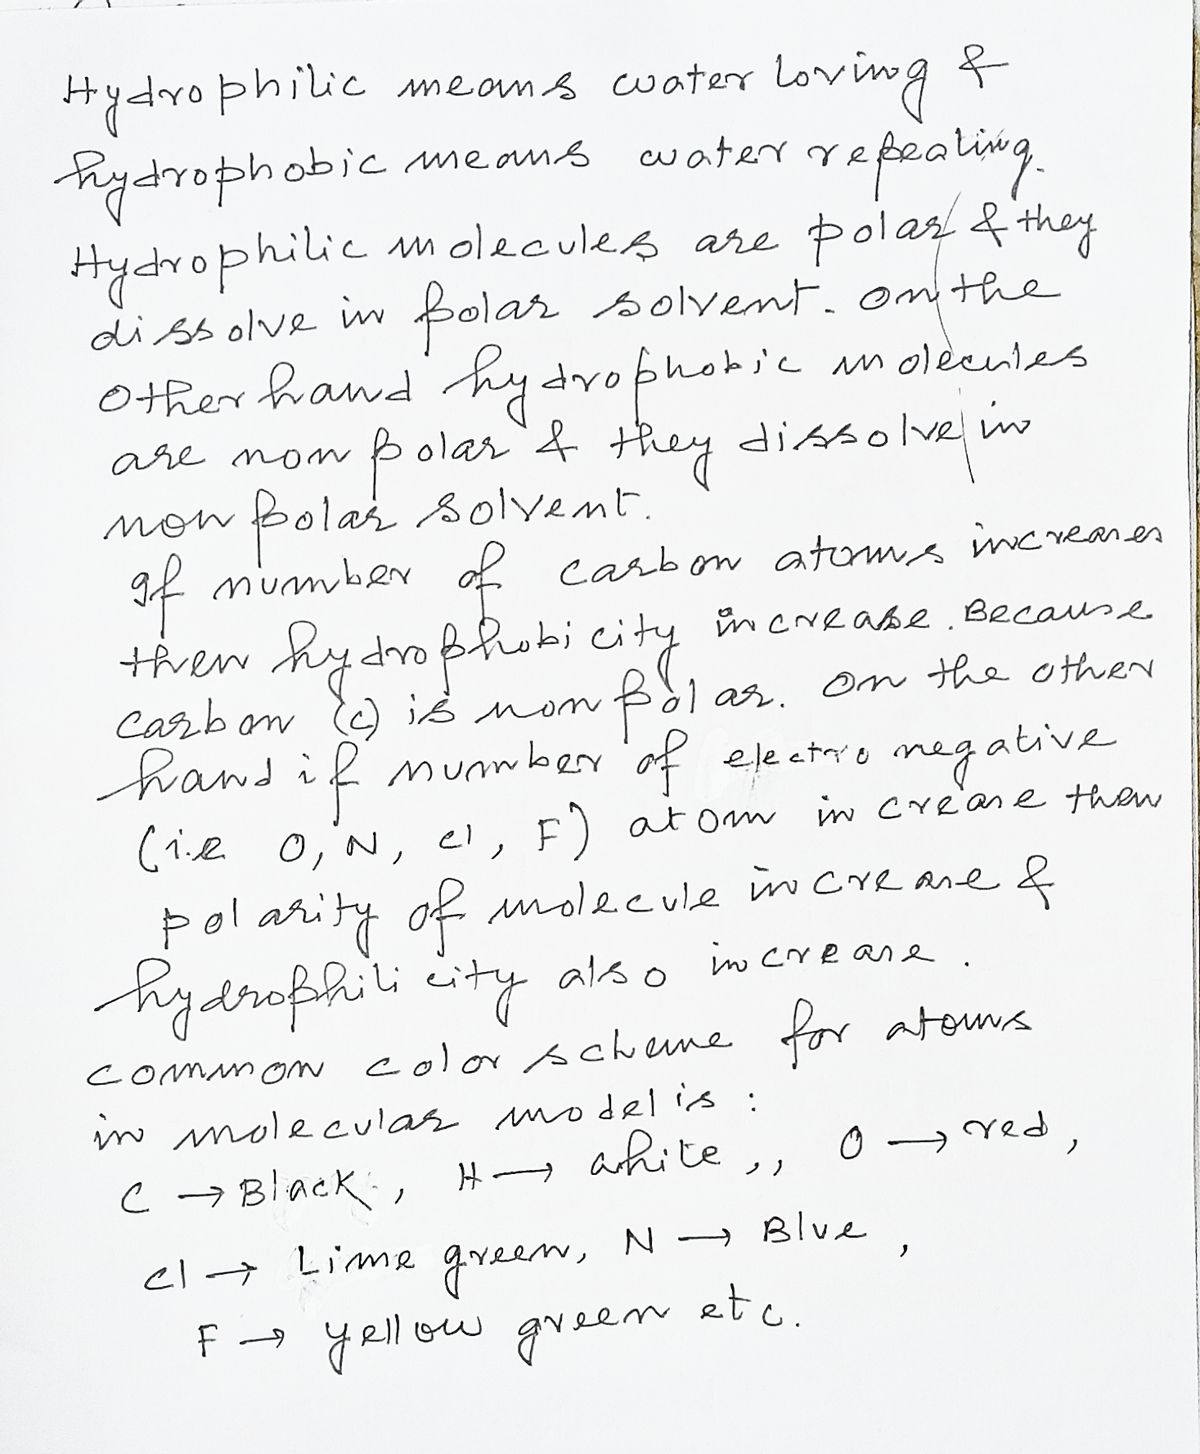 Hydrophilic means water loving &
hydrophobic means water repealing.
Hydrophilic molecules are polar & they
dissolve in polar solvent. on the
other hand hydrophobic molecules
are non polar & they dissolve in
non polar solvent.
If number of carbon atoms increases
then hydrophobicity increase. Because
carbon (c) is non polar. On the other
hand if number of electro negative
(i.e O, N, cl, F) atom increase then
polarity of molecule increase &
hydrophilicity also increase.
common color scheme for atoms
in molecular model is :
C → Black, H → white,, O → red,
cl → Lime green, N → Blue,
F → yellow green etc.